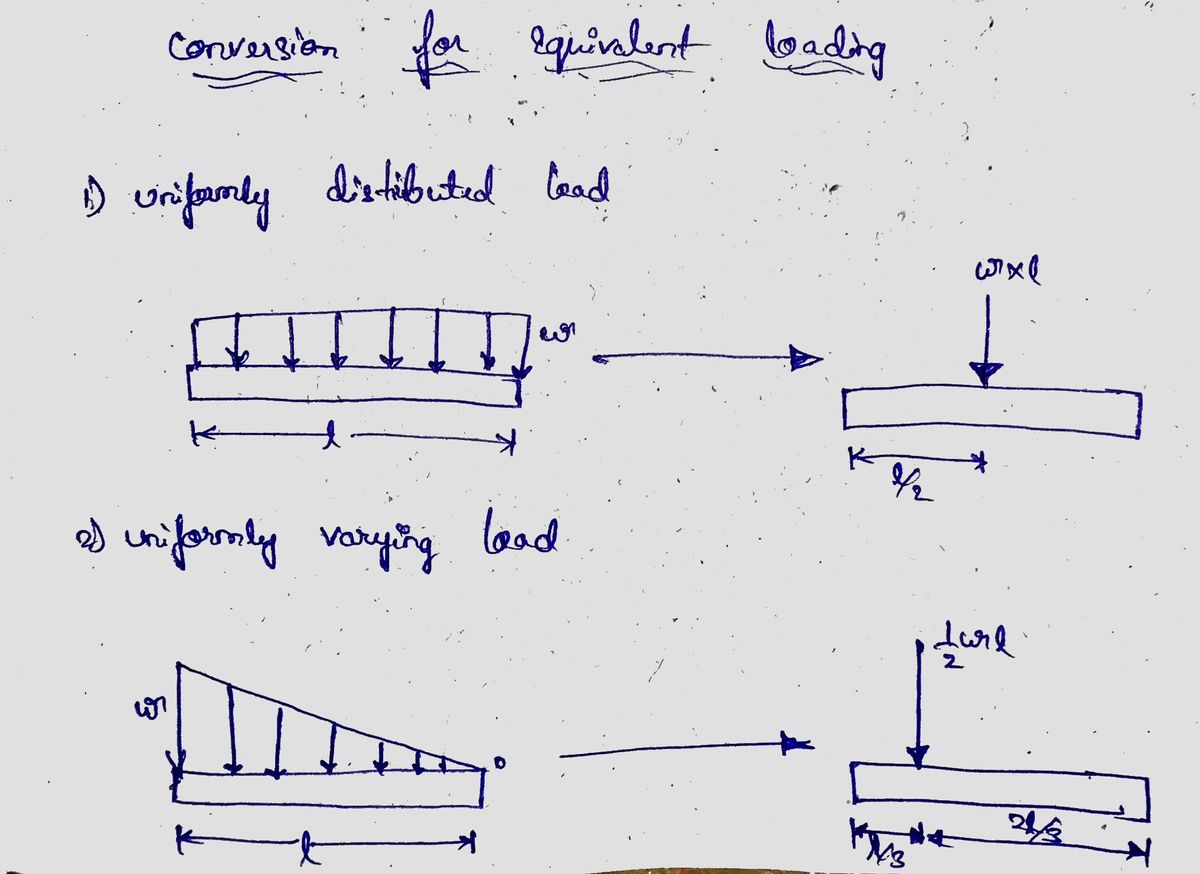 Conversion for Equivalent loading
1) uniformly distributed load
w×l
w
l
l/2
2) uniformly varying load
½wl
w
0
l
l/3
2l/3